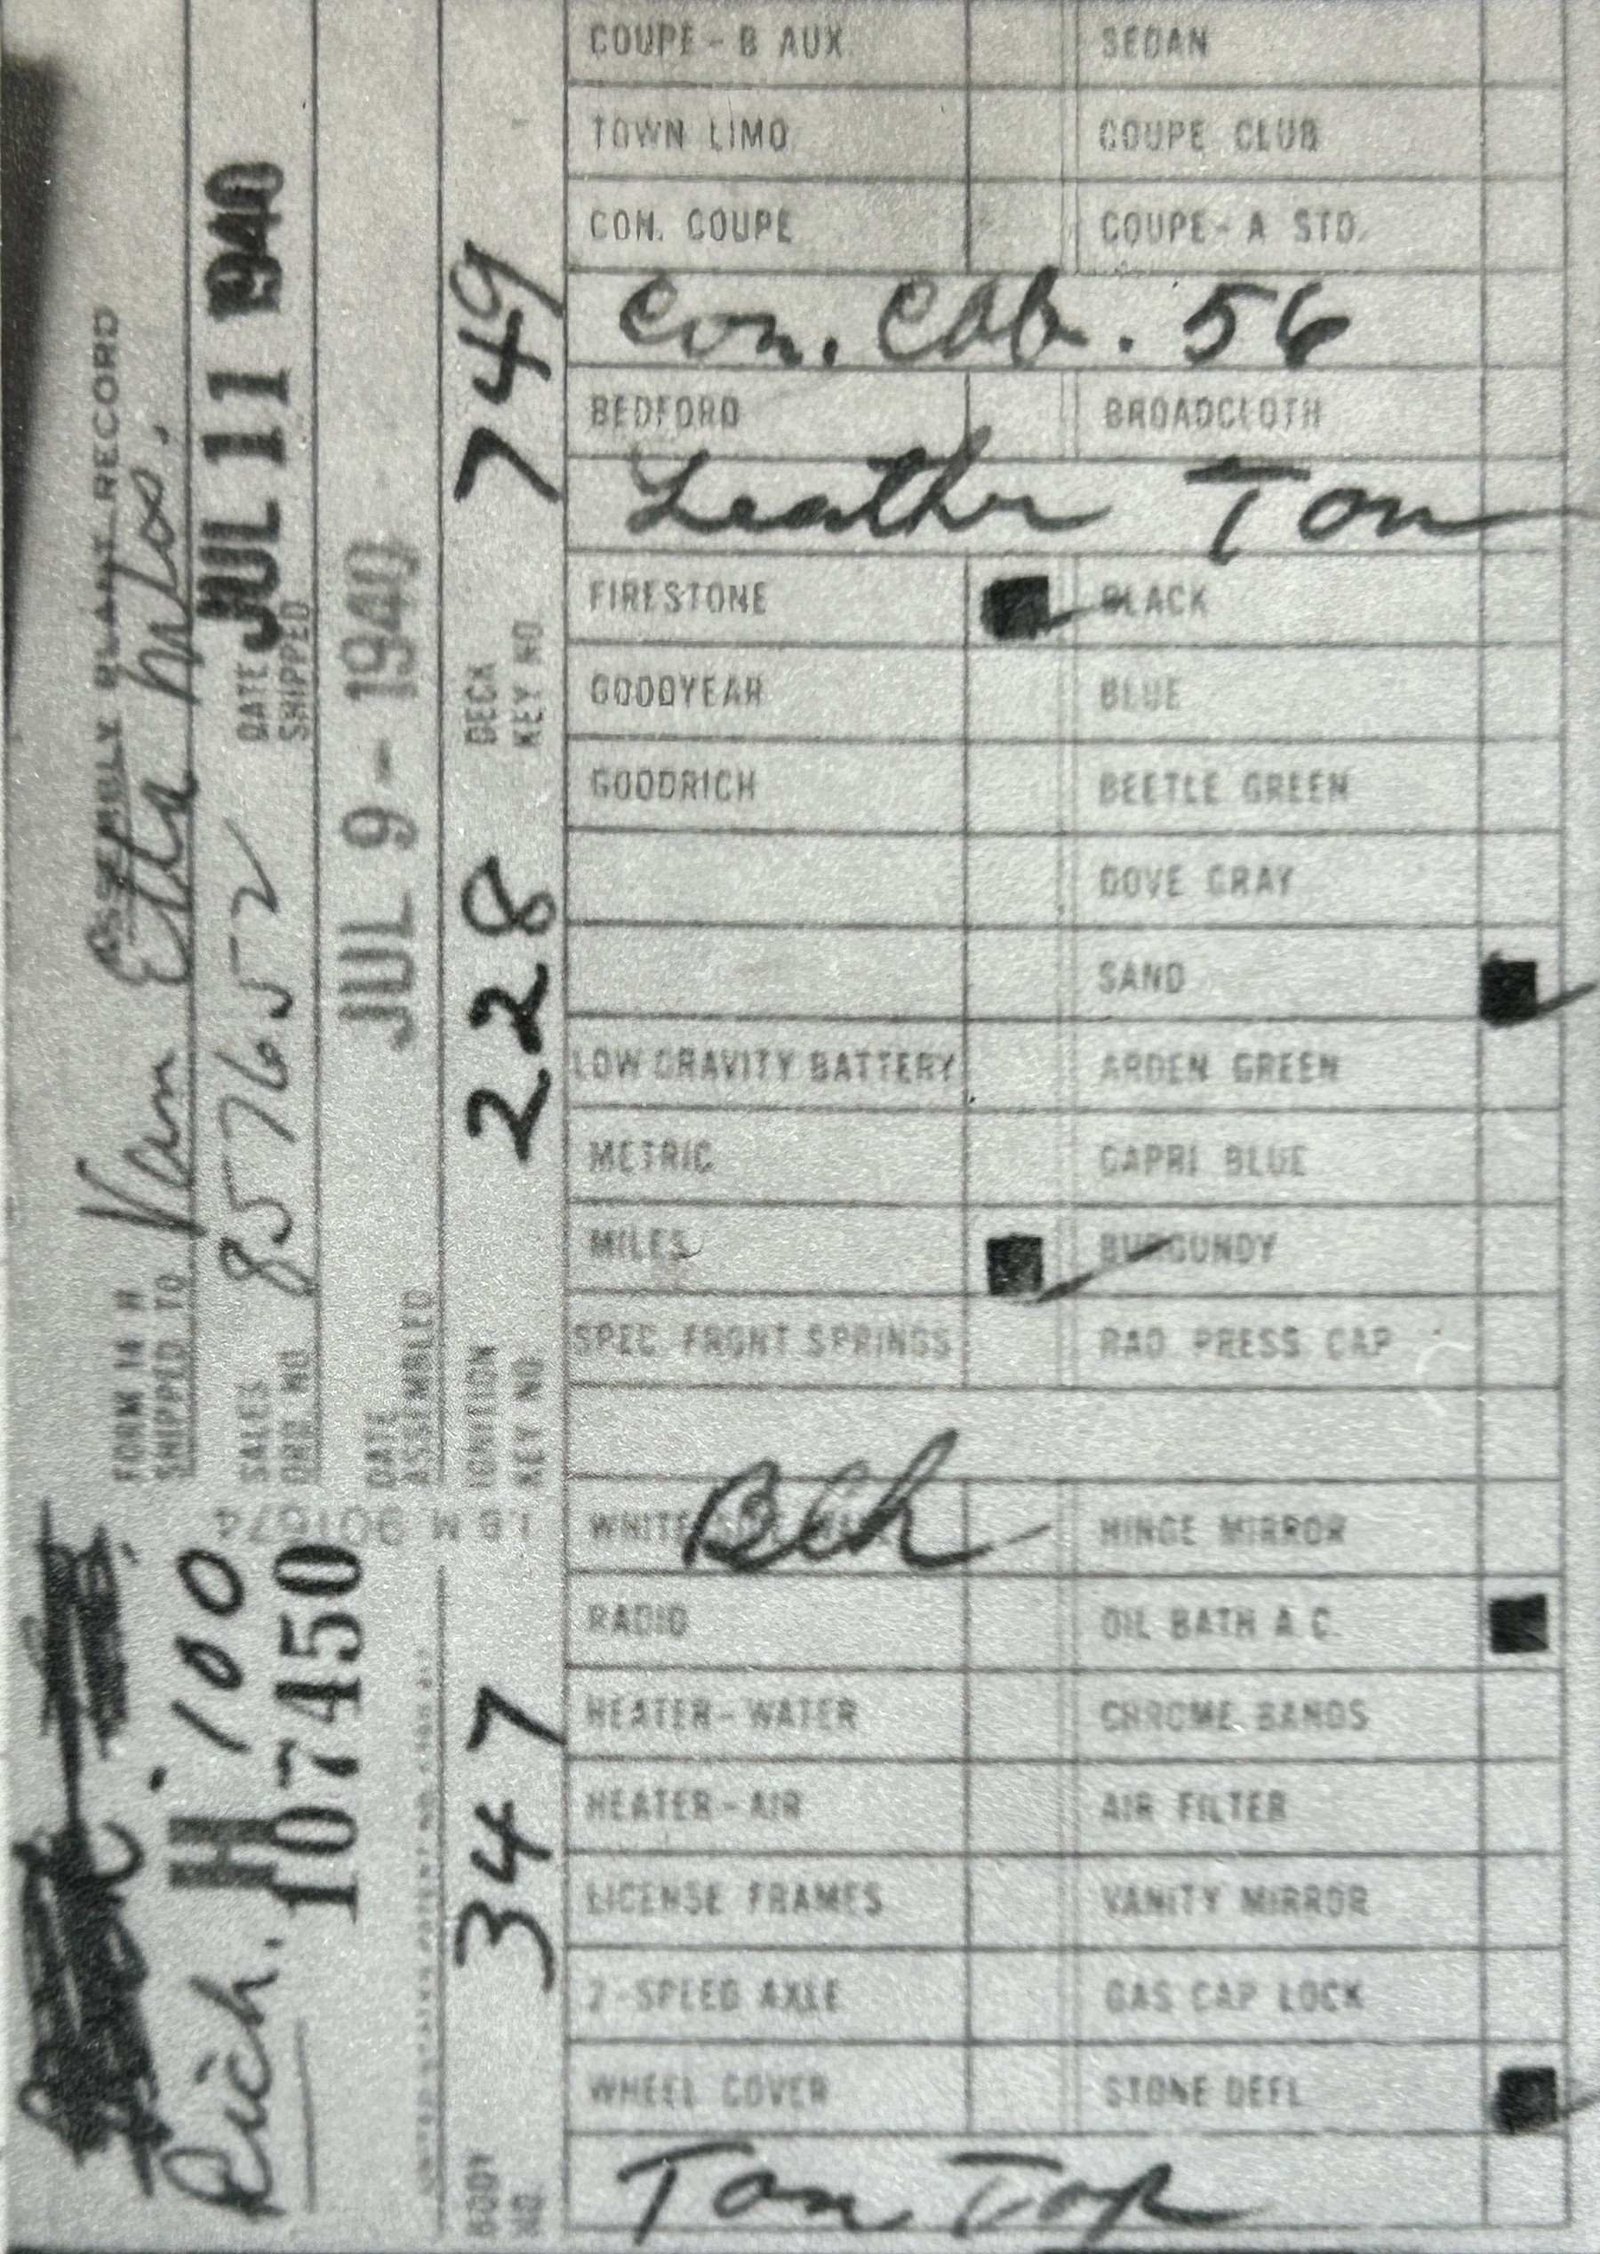 ASSEMBLY PLANT RECORD
FORM 14 H
SHIPPED TO Van Etta Mtrs.
SALES ORD. NO. 857652
DATE SHIPPED JUL 11 1940
DATE ASSEMBLED JUL 9 - 1940
IGNITION KEY NO. 228
DECK KEY NO. 749
I.B.M 901674
Rich.
H · 100
107450
BODY NO. 347
COUPE - B AUX. SEDAN
TOWN LIMO COUPE CLUB
CON. COUPE COUPE - A STD.
Con. Cab. 56
BEDFORD BROADCLOTH
Leather Tan
FIRESTONE BLACK
GOODYEAR BLUE
GOODRICH BEETLE GREEN
DOVE GRAY
SAND
LOW GRAVITY BATTERY ARDEN GREEN
METRIC CAPRI BLUE
MILES BURGUNDY
SPEC FRONT SPRINGS RAD. PRESS CAP
WHITE Blk HINGE MIRROR
RADIO OIL BATH A.C.
HEATER - WATER CHROME BANDS
HEATER - AIR AIR FILTER
LICENSE FRAMES VANITY MIRROR
2-SPEED AXLE GAS CAP LOCK
WHEEL COVER STONE DEFL
Tan Top